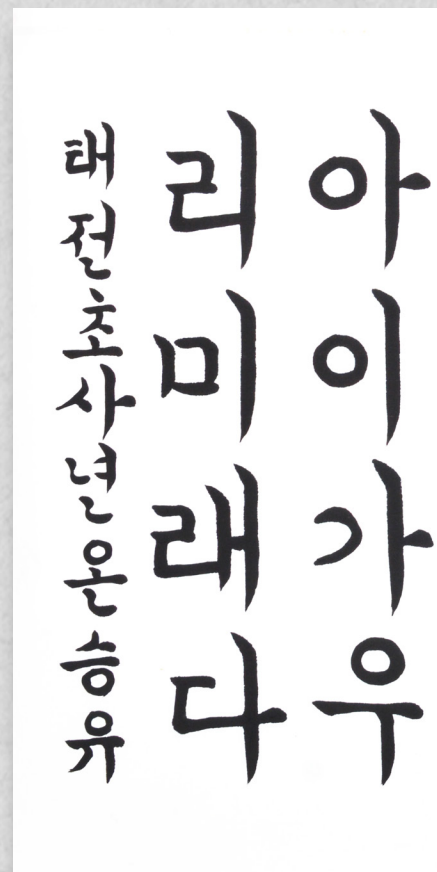 아이가우
리미래다
태전초사년온승유